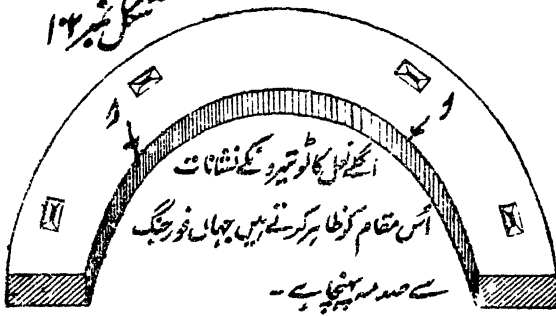 شکل نمبر ۱۰۲
و
و
اگلے نعل کا ٹو تیروں کے نشانات
اُس مقام کو ظاہر کرتے ہیں جہاں فورجنگ
سے صدمہ پہنچتا ہے -